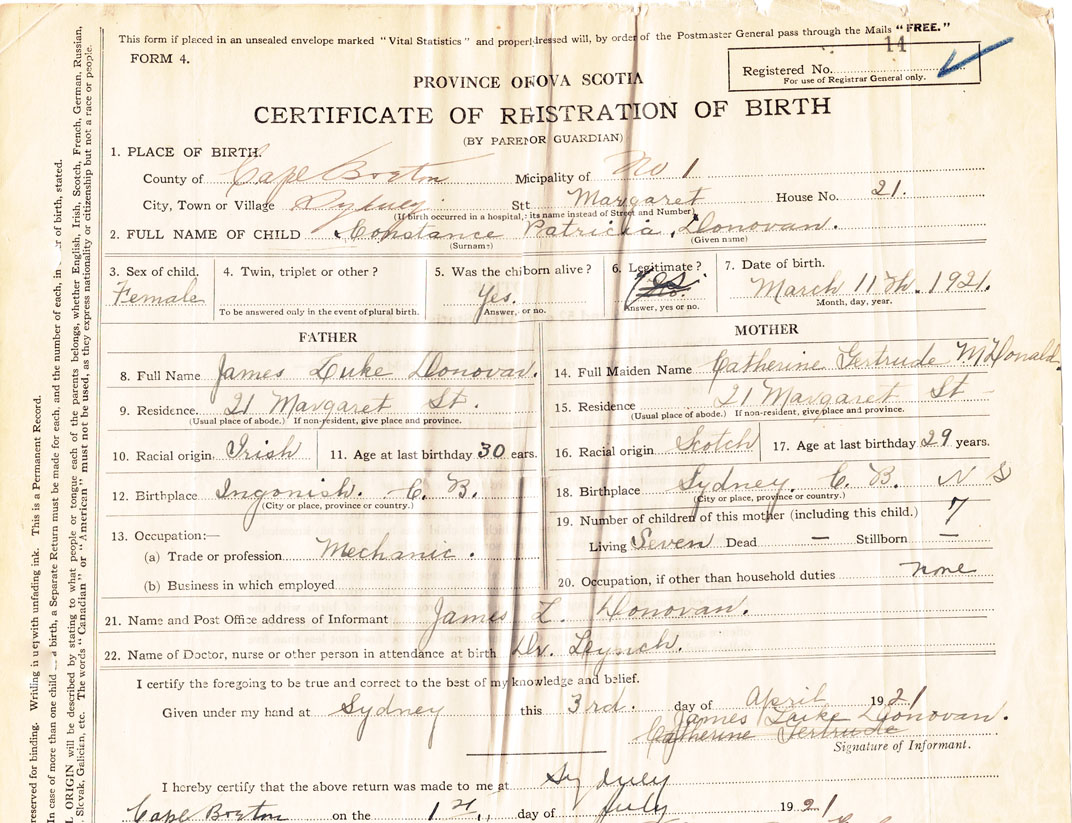 This form if placed in an unsealed envelope marked "Vital Statistics" and properl dressed will, by order of the Postmaster General pass through the Mails "FREE."
FORM 4.
14
Registered No.
For use of Registrar General only.
PROVINCE OF OVA SCOTIA
CERTIFICATE OF R ISTRATION OF BIRTH
(BY PARE OR GUARDIAN)
1. PLACE OF BIRTH.
County of Cape Breton M icipality of No 1
City, Town or Village Sydney St t Margaret House No. 21.
(If birth occurred in a hospital, its name instead of Street and Number)
2. FULL NAME OF CHILD Constance Patricia Donovan.
(Surname) (Given name)
3. Sex of child. 4. Twin, triplet or other? 5. Was the chi born alive? 6. Legitimate? 7. Date of birth.
Female Yes. March 11th. 1921.
To be answered only in the event of plural birth. Answer, or no. Answer, yes or no. Month, day, year.
FATHER
8. Full Name James Luke Donovan.
9. Residence. 21 Margaret St.
(Usual place of abode.) If non-resident, give place and province.
10. Racial origin. Irish 11. Age at last birthday 30 ears.
12. Birthplace Ingonish. C. B.
(City or place, province or country.)
13. Occupation:—
(a) Trade or profession Mechanic.
(b) Business in which employed
MOTHER
14. Full Maiden Name Catherine Gertrude McDonald.
15. Residence 21 Margaret St
(Usual place of abode.) If non-resident, give place and province.
16. Racial origin Scotch 17. Age at last birthday 29 years.
18. Birthplace Sydney. C. B. N S
(City or place, province or country.)
19. Number of children of this mother (including this child.) 7
Living Seven Dead — Stillborn —
20. Occupation, if other than household duties none
21. Name and Post Office address of Informant James L. Donovan.
22. Name of Doctor, nurse or other person in attendance at birth Dr. Lynch.
I certify the foregoing to be true and correct to the best of my knowledge and belief.
Given under my hand at Sydney this 3rd. day of April 1921
James Luke Donovan.
Catherine Gertrude
Signature of Informant.
I hereby certify that the above return was made to me at Sydney
Cape Breton on the day of July 1921
reserved for binding. Writing in unfading ink. This is a Permanent Record.
In case of more than one child birth, a Separate Return must be made for each, and the number of each, in r of birth, stated.
L ORIGIN will be described by stating to what people or tongue each of the parents belongs, whether English, Irish, Scotch, French, German, Russian,
Slovak, Galician, etc. The words "Canadian" or "American" must not be used, as they express nationality or citizenship but not a race or people.